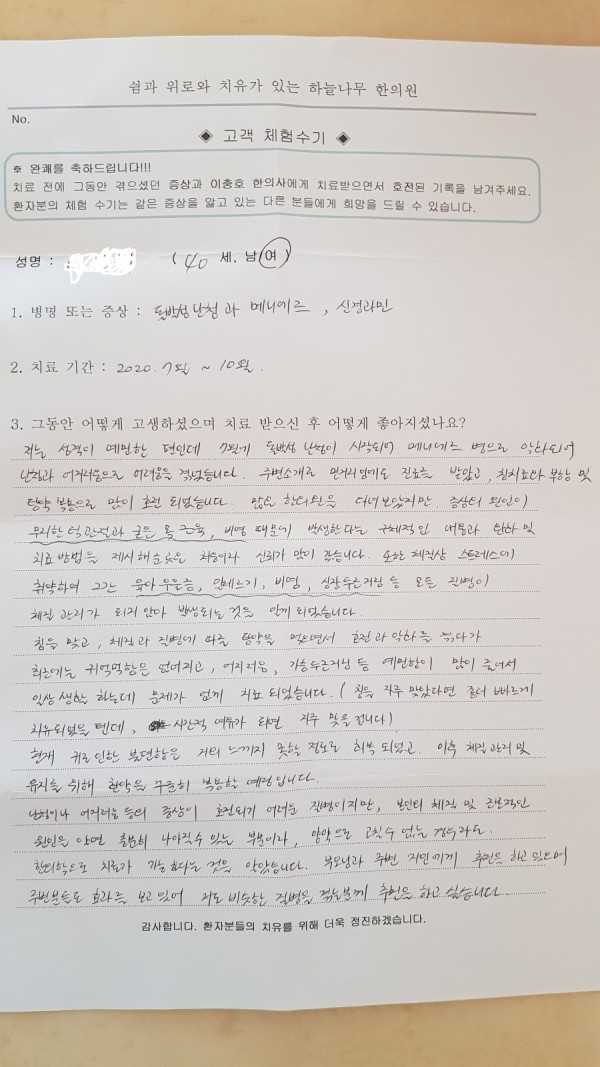 쉼과 위로와 치유가 있는 하늘나무 한의원
No.
◈ 고객 체험수기 ◈
※ 완쾌를 축하드립니다!!!
치료 전에 그동안 겪으셨던 증상과 이충호 한의사에게 치료받으면서 호전된 기록을 남겨주세요.
환자분의 체험 수기는 같은 증상을 앓고 있는 다른 분들에게 희망을 드릴 수 있습니다.
성명 : ( 40 세, 남 여 )
1. 병명 또는 증상 : 돌발성난청과 메니에르 , 신경과민
2. 치료 기간 : 2020. 7월 ~ 10월.
3. 그동안 어떻게 고생하셨으며 치료 받으신 후 어떻게 좋아지셨나요?
저는 성격이 예민한 편인데 7월에 돌발성 난청이 시작되어 메니에르 병으로 악화되어
난청과 어지러움으로 어려움을 겪었습니다. 주변소개로 먼거리임에도 진료를 받았고, 침치료와 부항 및
탕약 복용으로 많이 호전 되었습니다. 많은 한의원을 다녀보았지만 증상의 원인이
무리한 턱관절과 굳은 목 근육, 비염 때문에 발생한다는 구체적인 내용과 완화 및
치료방법을 제시해준곳은 처음이라 신뢰가 많이 갔습니다. 또한 체질상 스트레스에
취약하며 그간 육아우울증, 안면느기, 비염, 심장두근거림 등 모든 질병이
체질 관리가 되지 않아 발생되는 것을 알게 되었습니다.
침을 맞고, 체질과 질병에 따른 탕약을 먹으면서 호전과 악화를 겪다가
최근에는 귀먹먹함은 없어지고, 어지러움, 가슴두근거림 등 예민함이 많이 줄어서
일상 생활 하는데 문제가 없게 치료 되었습니다. ( 침을 자주 맞았다면 좀더 빠르게
치유되었을 텐데, 시간적 여유가 되면 자주 맞을 겁니다)
현재 귀로 인한 불편함은 거의 느끼지 못할 정도로 회복 되었고, 이후 체질관리 및
유지를 위해 한약을 꾸준히 복용할 예정입니다.
난청이나 어지러움 등의 증상이 호전되기 어려운 질병이지만, 본인의 체질 및 근본적인
원인을 알면 충분히 나아질수 있는 부분이라, 양약으로 고칠수 없는 경우라도
한의학으로 치료가 가능하다는 것을 알았습니다. 부모님과 주변 지인에게 추천을 하고 있으며
주변분들도 효과를 보고 있어 저도 비슷한 질병을 겪는분께 추천을 하고 싶습니다.
감사합니다. 환자분들의 치유를 위해 더욱 정진하겠습니다.